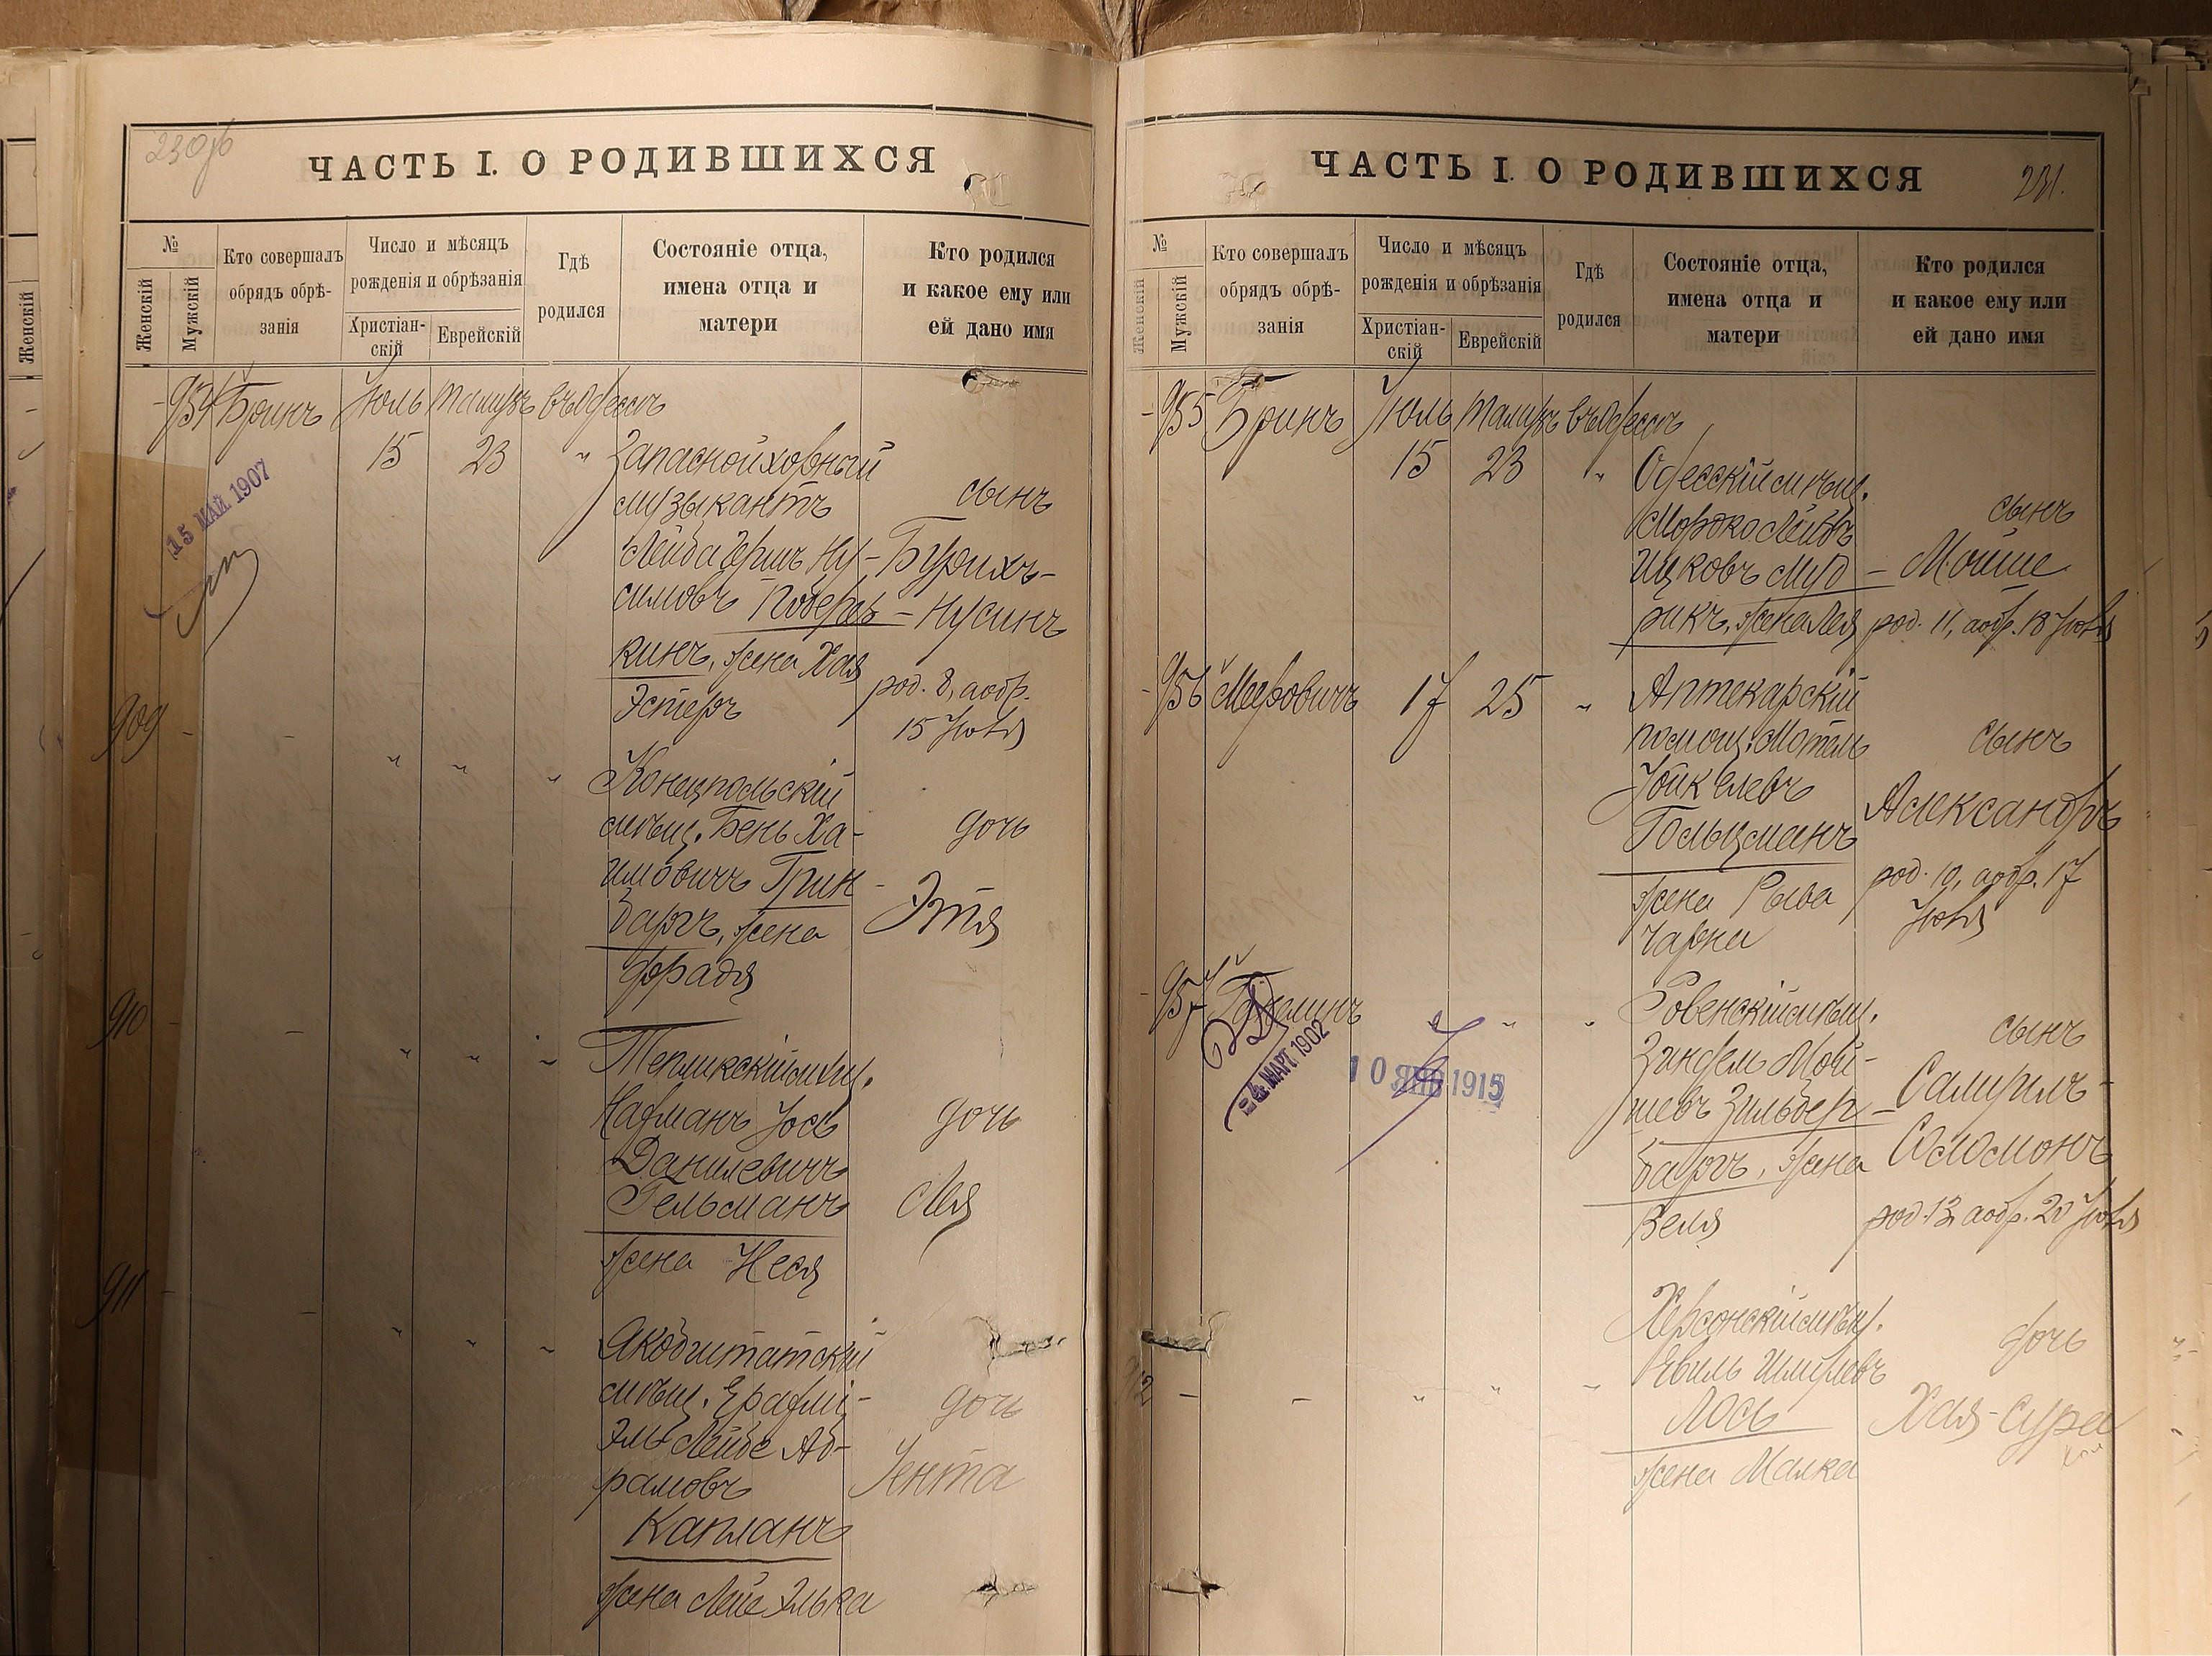 230 об
ЧАСТЬ I. О РОДИВШИХСЯ
№
Женскій
Мужскій
Кто совершалъ
обрядъ обрѣ-
занія
Число и мѣсяцъ
рожденія и обрѣзанія
Христіан-
скій
Еврейскій
Гдѣ
родился
Состояніе отца,
имена отца и
матери
Кто родился
и какое ему или
ей дано имя
- 954 Бринъ Іюль Тамузъ въ Одессѣ
15 23 " Запасной хорный
музыкантъ
Лейба Гершъ Ну-
симовъ Побереж-
кинъ, жена Хая
Эстеръ
сынъ
Бурихъ-
Нусинъ
род. 8, а обр.
15 Іюля
15 МАЙ 1907
909 - - " " " Конецпольскій
мѣщ. Бень Ха-
имовичъ Грин-
баргъ, жена
Фрадя
дочь
Этя
910 - - " " " Тепликскій мѣщ.
Нахманъ Іось
Данилевичъ
Гельманъ
жена Неся
дочь
Лея
911 - - " " " Якобштатскій
мѣщ. Ерахмі-
эль Лейбе Аб-
рамовъ
Капланъ
жена Лее Элька
дочь
Іента
ЧАСТЬ I. О РОДИВШИХСЯ
231.
№
Женскій
Мужскій
Кто совершалъ
обрядъ обрѣ-
занія
Число и мѣсяцъ
рожденія и обрѣзанія
Христіан-
скій
Еврейскій
Гдѣ
родился
Состояніе отца,
имена отца и
матери
Кто родился
и какое ему или
ей дано имя
- 955 Бринъ Іюль Тамузъ въ Одессѣ
15 23 " Одесскій мѣщ.
Мордко Лейбъ
Ицковъ Муд-
рикъ, жена Лея
сынъ
Мойше
род. 11, а обр. 18 Іюля
- 956 Мееровичъ 17 25 " Аптекарскій
помощ. Мотель
Іойкелевъ
Гольцманъ
жена Рыва
Чарна
сынъ
Александръ
род. 10, а обр. 17
Іюля
- 957 " " " Ровенскій мѣщ.
Зиндель Мой-
шевъ Зильбер-
баргъ, жена
Веля
сынъ
Самуилъ-
Соломонъ
род. 13, а обр. 20 Іюля
- 4 МАРТ. 1902
10 ЯНВ 1915
912 - - " " " Херсонскій мѣщ.
Лось
жена Малка
дочь
Хая-Сура